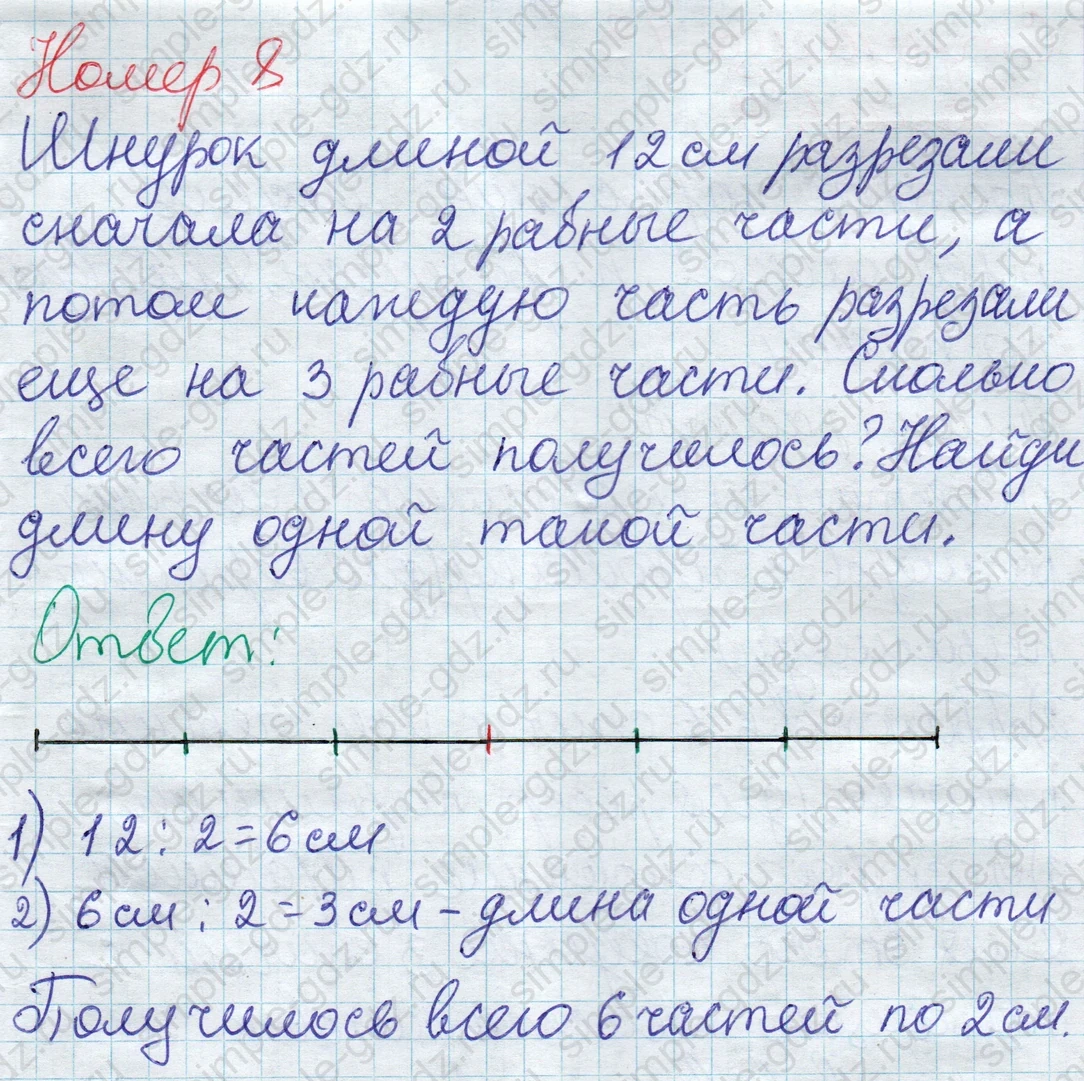 Номер 8
Шнурок длиной 12 см разрезали
сначала на 2 равные части, а
потом каждую часть разрезали
еще на 3 равные части. Сколько
всего частей получилось? Найди
длину одной такой части.
Ответ:
1) 12 : 2 = 6 см
2) 6 см : 2 = 3 см – длина одной части
Получилось всего 6 частей по 2 см.
simple-gdz.ru